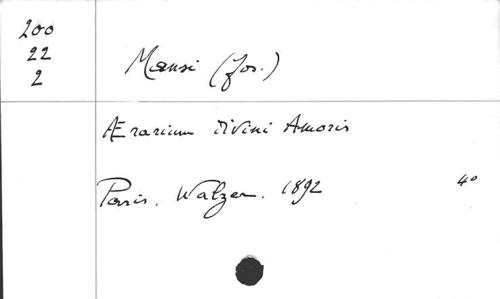 200
22
2
Mansi (Jos.)
Ærarium Divini Amoris
Paris. Walzer. 1892 4°